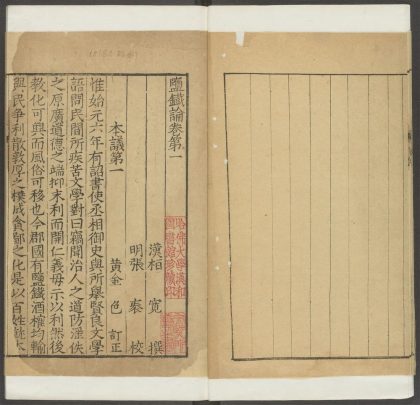 鹽鐵論卷第一
漢桓 寬 撰
明張 校
本議第一 黃金 色 訂正
惟始元六年有詔書使丞相御史與所舉賢良文學
語問民間所疾苦文學對曰竊聞治人之道防淫佚
之原廣道德之端抑末利而開仁義毋示以利然後
教化可興而風俗可移也今郡國有鹽鐵酒榷均輸
與民爭利散敦厚之樸成貪鄙之化是以百姓就本
哈佛大學漢和
圖書館珍藏印